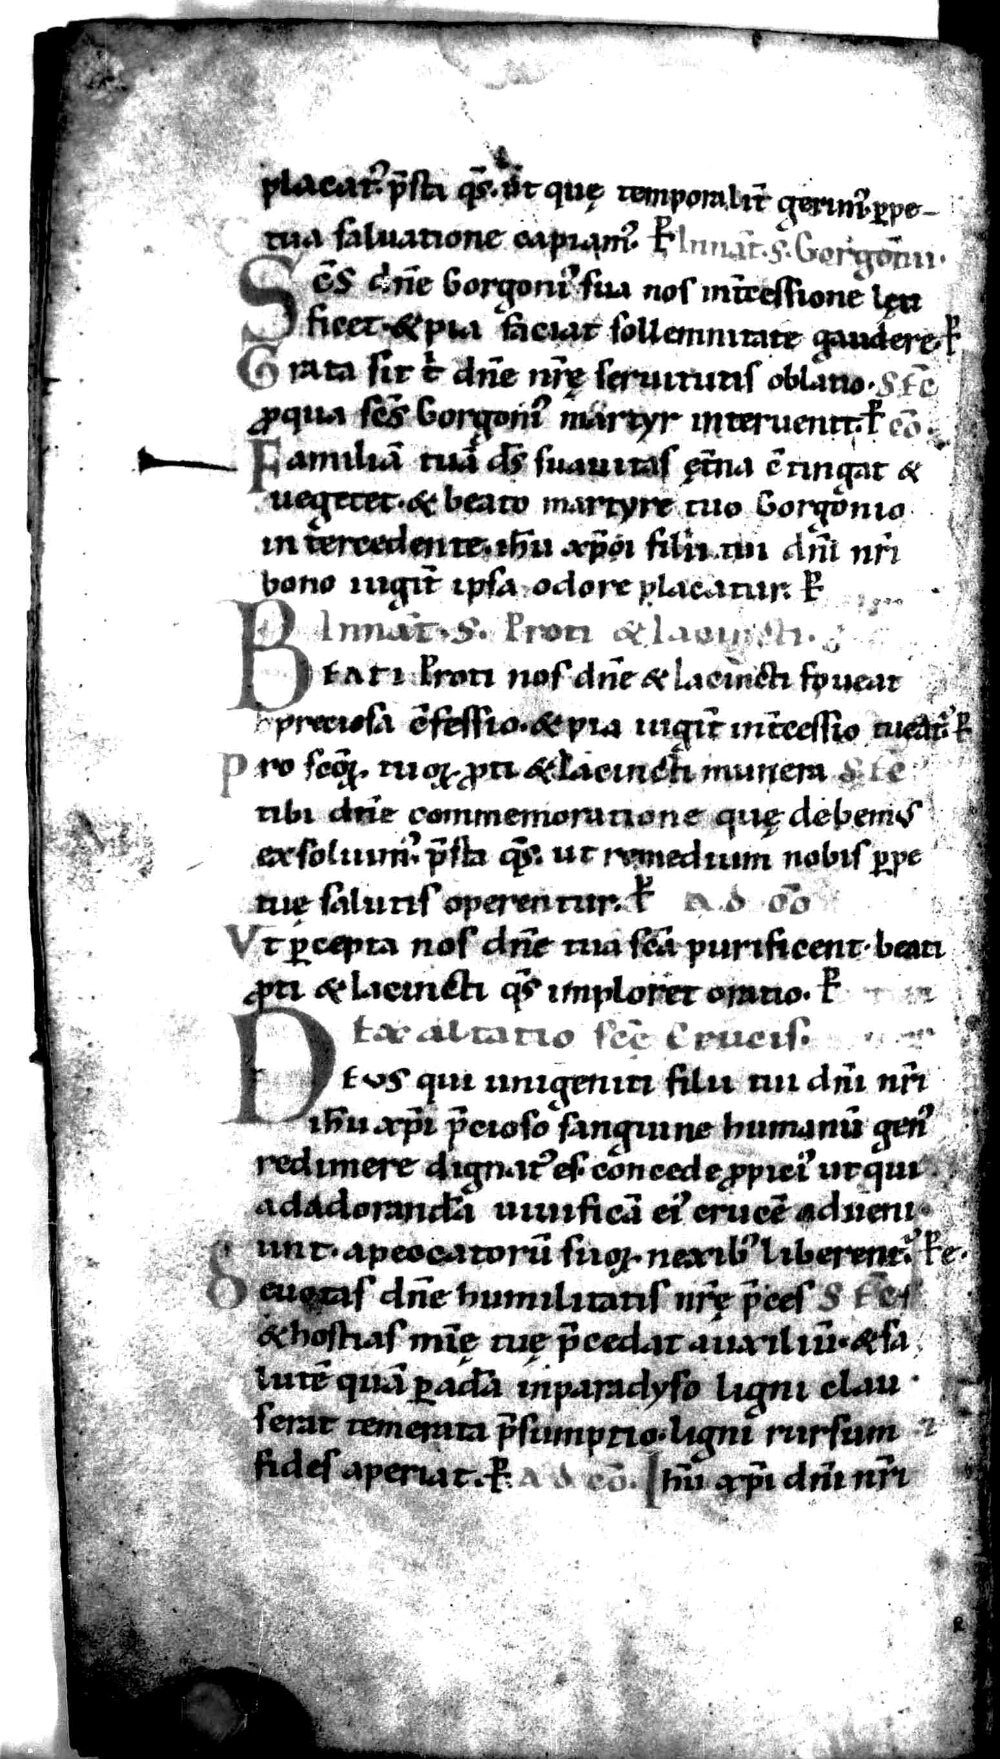 placat᷒. p̄sta q̄s. ut quę temporalit̄ gerim᷒. ꝑpe-
tua saluatione capiam᷒. ꝑ In nāt. s. Gorgonii.
Sc̄s dn̄e Gorgoni᷒ sua nos int̄cessione lęti
ficet. & pia faciat sollemnitate gaudere. ꝑ
Grata sit t̄ dn̄e nr̄ę seruitutis oblatio. Sēc
ꝓ qua sc̄s Gorgoni᷒ martyr interuenit. ꝑ cō.
Familiā tuā ds̄ suauitas ęt̄na c̄tingat &
uegetet. & beato martyre tuo Gorgonio
intercedente. ih̄u xp̄i filii tui dn̄i nr̄i
bono iugit̄ ipsa odore placatur. ꝑ
In nāt. S. Proti & Iacincti.
Beati Proti nos dn̄e & Iacincti foueat
preciosa c̄fessio. & pia iugit̄ int̄cessio tueat᷒. ꝑ
Pro sc̄oꝝ tuoꝝ ꝓti & Iacincti munera Sēc
tibi dn̄e commemoratione quę debemus
exsoluim᷒. p̄sta q̄s. ut remedium nobis ꝑpe
tuę salutis operentur. ꝑ ad cō
Vt ꝑcepta nos dn̄e tua sc̄a purificent. beati
ꝓti & Iacincti q̄s imploret oratio. ꝑ
Exaltatio sc̄e Crucis.
Deus qui unigeniti filii tui dn̄i nr̄i
ih̄u xp̄i p̄cioso sanguine humanū gen᷒
redimere dignat᷒ es. concede ꝓpici᷒ ut qui
ad adorandā uiuificā ei᷒ crucē adueni
unt. a peccatorū suoꝝ nexib᷒ liberent᷒. ꝑ e.
Deuotas dn̄e humilitatis nr̄ę p̄ces Sēc
& hostias mīę tuę p̄cedat auxiliū. & sa
lutē quā ꝑ adā in paradyso ligni clau
serat temerata p̄sumptio. ligni rursum
fides aperiat. ꝑ. ad cō. Ih̄u xp̄i dn̄i nr̄i